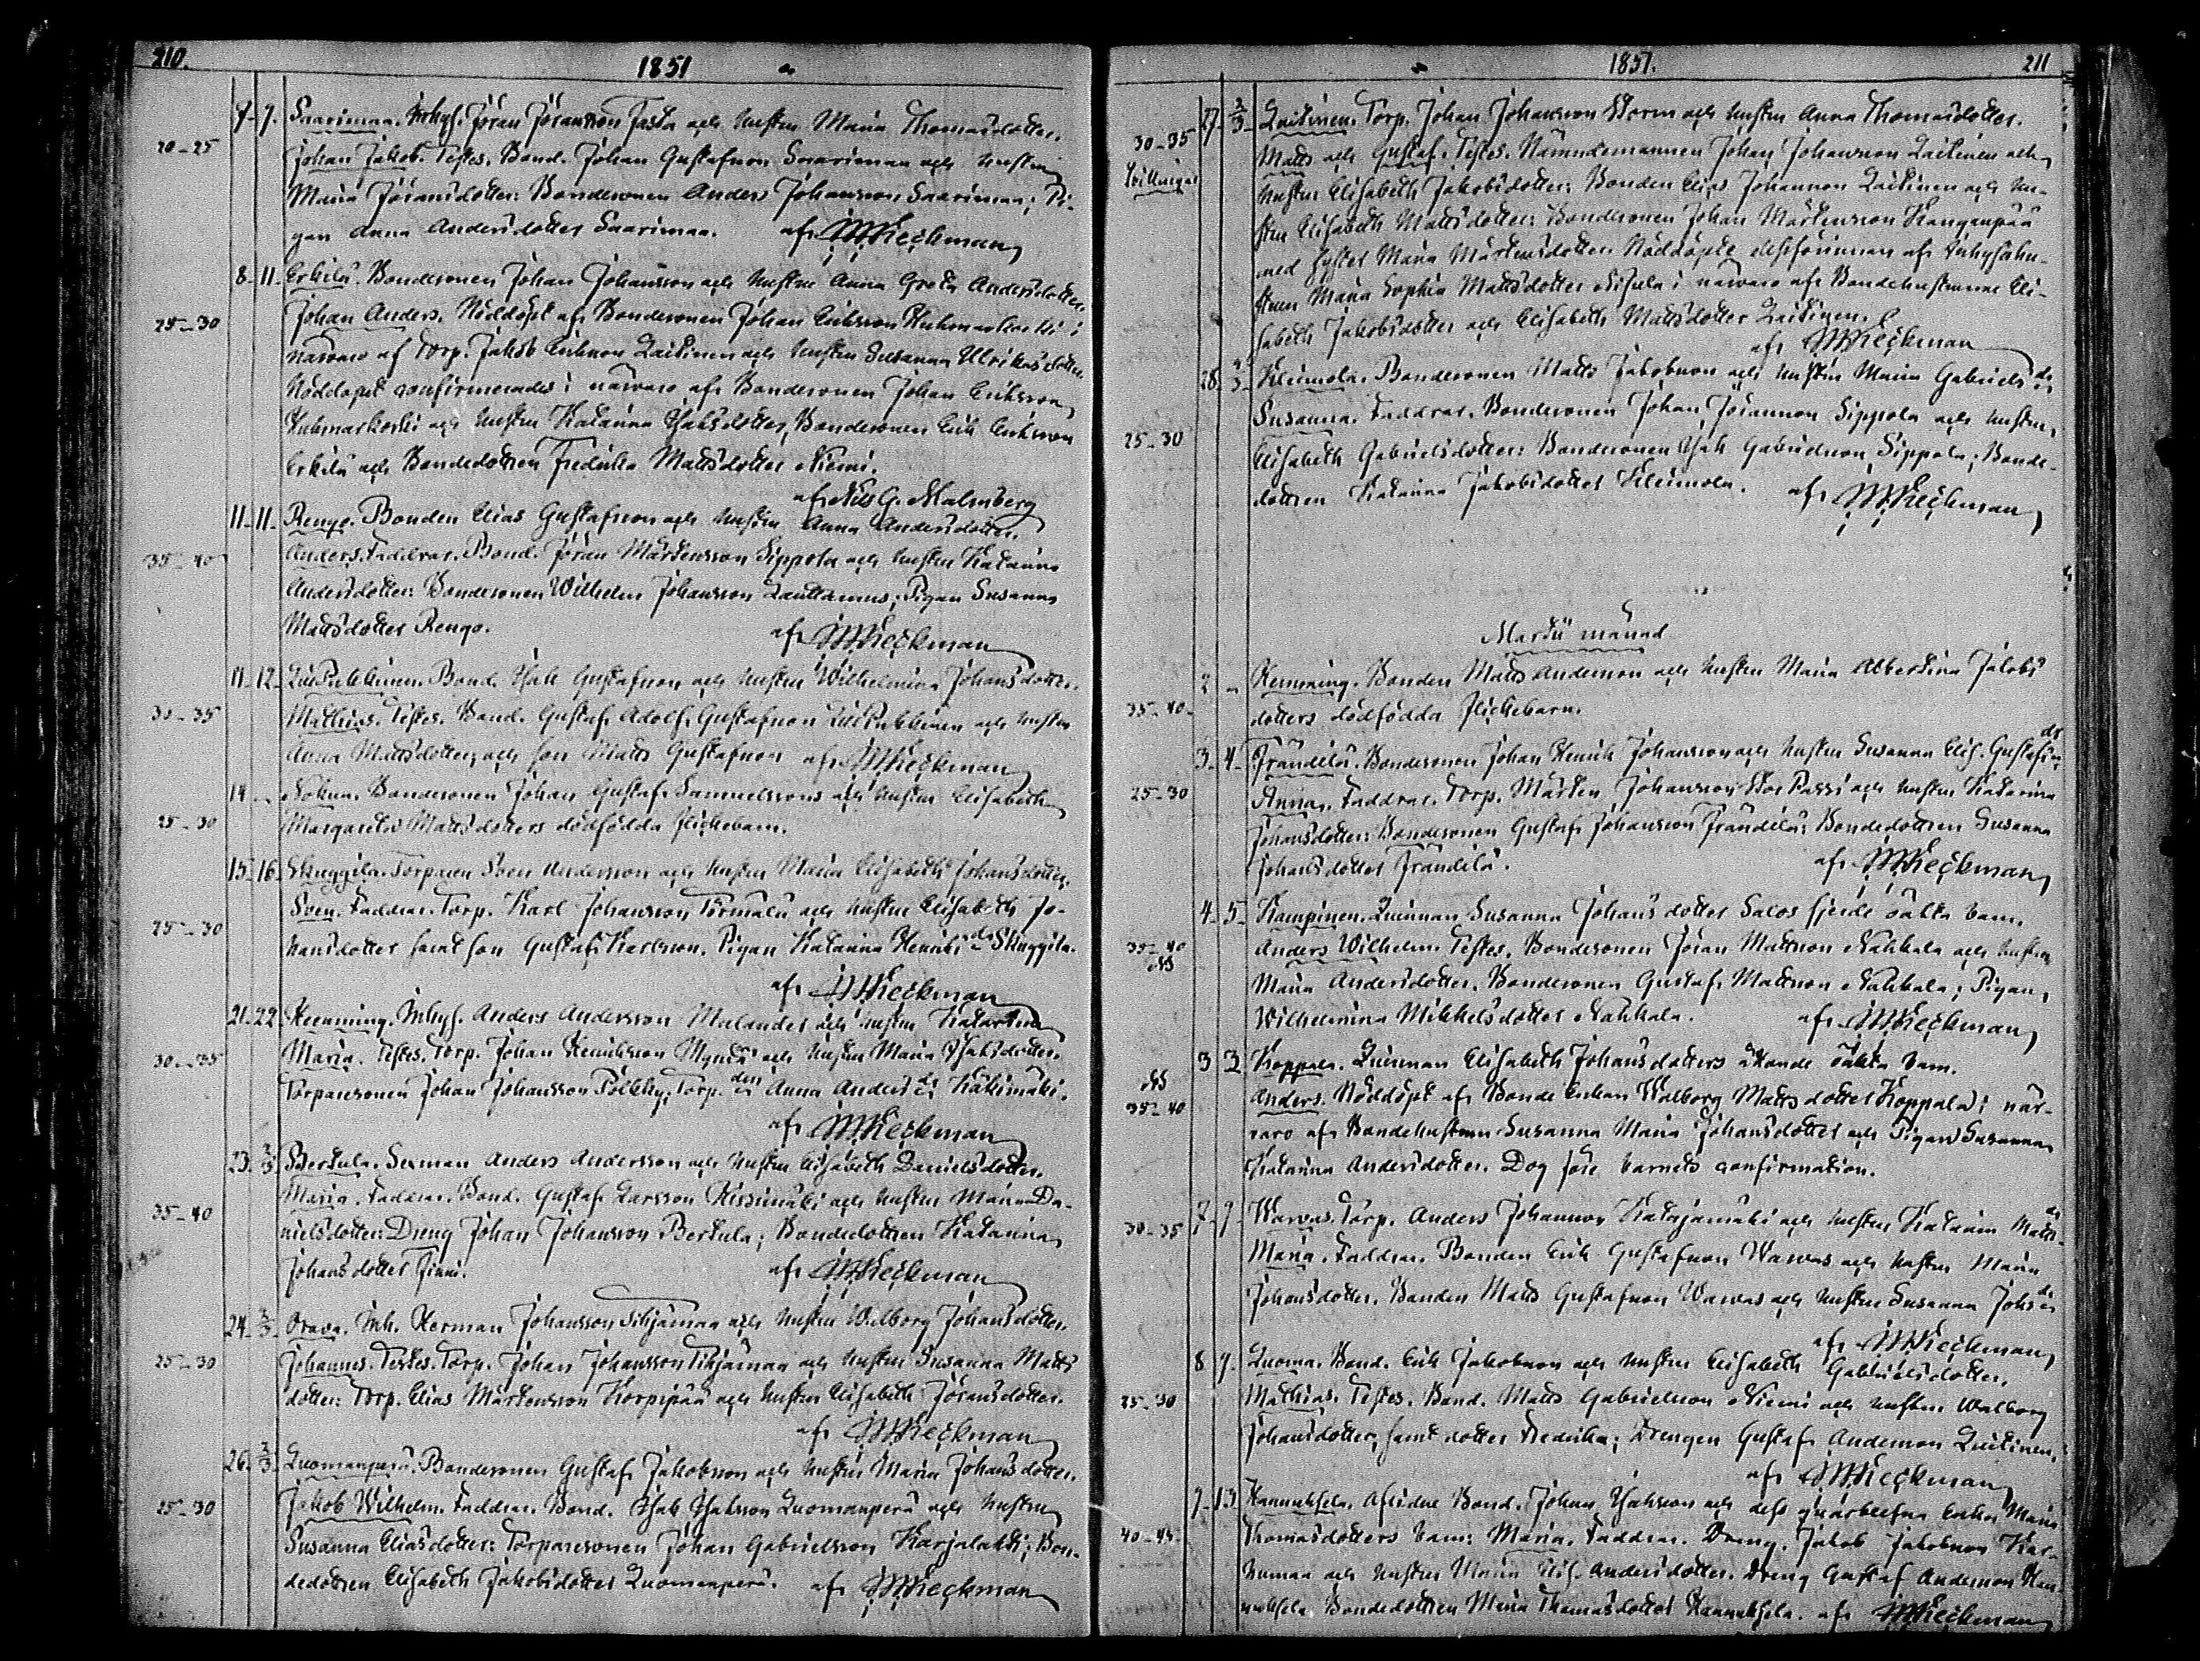 210.
1851
7. 7. Saarimaa. Inhys. Jöran Jöransson Fasta och hustru Maria Thomasdotter.
20-25 Johan Jakob. Testes. Bond. Johan Gustafsson Saarimaa och hustru
Maria Jöransdotter: Bondesonen Anders Johansson Saarimaa; Pi-
gan Anna Andersdotter Saarimaa. af
8. 11. Erkilä. Bondesonen Johan Johansson och hustru Anna Greta Andersdotter.
25-30 Johan Anders. Nöddöpt af Bondesonen Johan Eriksson i
närvaro af Torp. Jakob Eriksson Laitinen och hustru Susanna Ulriksdotter.
Nöddopet confirmerades i närvaro af Bondesonen Johan Eriksson
och hustru Katarina Isaksdotter, Bondesonen Erik Eriksson
Erkilä och Bondedottren Fredrika Mattsdotter Niemi.
af Nils G. Malmberg
11. 11. Rengo. Bonden Elias Gustafsson och hustru Anna Andersdotter.
35-40 Anders. Faddrar. Bond. Jöran Mårtensson Sippola och hustru Katarina
Andersdotter: Bondesonen Wilhelm Johansson; Pigan Susanna
Mattsdotter Rengo. af
11. 12. Bond. Isak Gustafsson och hustru Wilhelmina Johansdotter.
30-35 Mathias. Testes. Bond. Gustaf Adolf Gustafsson och hustru
Anna Mattsdotter, och son Matts Gustafsson af
14. Bondesonen Johan Gustaf Samuelssons och hustru Elisabeth
25-30 Margareta Mattsdotters dödfödda flickebarn.
15. 16. Skuggila. Torparen Sven Andersson och hustru Maria Elisabeth Johansdotter.
25-30 Sven. Faddrar. Torp. Karl Johansson Törmälä och hustru Elisabeth Jo-
hansdotter samt son Gustaf Karlsson. Pigan Katarina Henriksdr Skuggila.
af
21. 22. Henming. Inhys. Anders Andersson Malander och hustru Katarina
30-35 Maria. Testes. Torp. Johan Henriksson och hustru Maria Isaksdotter.
Torparesonen Johan Johansson; Torp. Anna Andersdr Käkimäki.
af
23. 2/3 Bertula. Sexman Anders Andersson och hustru Elisabeth Danielsdotter.
35-40 Maria. Faddrar. Bond. Gustaf Larsson Kissimäki och hustru Maria Da-
nielsdotter: Dreng Johan Johansson Bertula; Bondedottren Katarina
Johansdotter. af
24. 2/3 Orava. Inh. Herman Johansson och hustru Walborg Johansdotter.
25-30 Johannes. Testes. Torp. Johan Johansson och hustru Susanna Matts
dotter: Torp. Elias Mårtensson Korpipää och hustru Elisabeth Jöransdotter.
af
26. 2/3 Luomanperä. Bondesonen Gustaf Jakobsson och hustru Maria Johansdotter.
25-30 Jakob Wilhelm. Faddrar. Bond. Isak Isaksson Luomanperä och hustru
Susanna Eliasdotter: Torparesonen Johan Gabrielsson Karjalahti; Bon-
dedottren Elisabeth Jakobsdotter Luomanperä. af
1851.
211
27. 2/3 Laitinen. Torp. Johan Johansson Storm och hustru Anna Thomasdotter.
30-35 Matts och Gustaf. Testes. Nämndemannen Johan Johansson Laitinen och
Tvillingar hustru Elisabeth Jakobsdotter: Bonden Elias Johansson Laitinen och hu-
stru Elisabeth Mattsdotter: Bondesonen Johan Mårtensson Kangenpää
med syster Maria Mårtensdotter. Nöddöpte dessförinnan af Inhyshu-
strun Maria Sophia Mattsdotter i närvaro af Bondehustrurne Eli-
sabeth Jakobsdotter och Elisabeth Mattsdotter Laitinen.
af
28. 2/3 Kleimola. Bondesonen Matts Jakobsson och hustru Maria Gabrielsdr
Susanna. Faddrar. Bondesonen Johan Jöransson Sippola och hustru
25-30 Elisabeth Gabrielsdotter: Bondesonen Isak Gabrielsson Sippola; Bonde-
dottren Katarina Jakobsdotter Kleimola. af
Martii månad
2 Henming. Bonden Matts Andersson och hustru Maria Albertina Jakobs
35-40 dotters dödfödda flickebarn.
3. 4. Frändilä. Bondesonen Johan Henrik Johansson och hustru Susanna Elis. Gustafsdr
25-30 Anna. Faddrar. Torp. Mårten Johansson och hustru Katarina
Johansdotter: Bondesonen Gustaf Johansson Frändilä; Bondedottren Susanna
Johansdotter Frändilä. af
4. 5. Kampinen. Qvinnan Susanna Johansdotter Salos fjerde oäkta barn.
35-40 Anders Wilhelm. Testes. Bondesonen Jöran Mattsson Nahkala och hustru
Maria Andersdotter. Bondesonen Gustaf Mattsson Nahkala; Pigan
Wilhelmina Mikkelsdotter Nahkala. af
3 3 Koppala. Qvinnan Elisabeth Johansdotters oäkta barn.
35-40 Anders. Nöddöpt af Bonde Enkan Walborg Mattsdotter Koppala i när-
varo af Bondehustrun Susanna Maria Johansdotter och Pigan Susanna
Katarina Andersdotter. Dog före barnets confirmation.
7. 9. Warvas. Torp. Anders Johansson Katajamäki och hustru Katarina Mattsdr
30-35 Maria. Faddrar. Bonden Erik Gustafsson Warvas och hustru Maria
Johansdotter. Bonden Matts Gustafsson Warvas och hustru Susanna Johsdr
af
8 9. Luoma. Bond. Erik Jakobsson och hustru Elisabeth Gabrielsdotter.
25-30 Mathias. Testes. Bond. Matts Gabrielsson Niemi och hustru Walborg
Johansdotter, samt dotter Fredrika; Drengen Gustaf Andersson Laitinen.
af
9. 13. Hannuksela. Afledne Bond. Johan Isaksson och dess qvarblefna Enka Maria
40-45 Thomasdotters barn: Maria. Faddrar. Dreng. Jakob Jakobsson
och hustru Maria Elis. Andersdotter. Dreng Gustaf Andersson Han-
nuksela Bondedottren Maria Thomasdotter Hannuksela. af